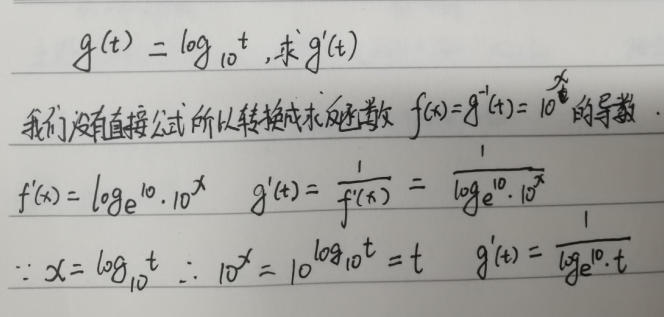 g(t) = log₁₀ᵗ, 求 g'(t)
我们没有直接公式所以转换成求反函数 f(x)=g⁻¹(t)=10ˣ 的导数.
f'(x) = logₑ¹⁰·10ˣ g'(t) = 1/f'(x) = 1/(logₑ¹⁰·10ˣ)
∵ x = log₁₀ᵗ ∴ 10ˣ = 10^(log₁₀ᵗ) = t g'(t) = 1/(logₑ¹⁰·t)